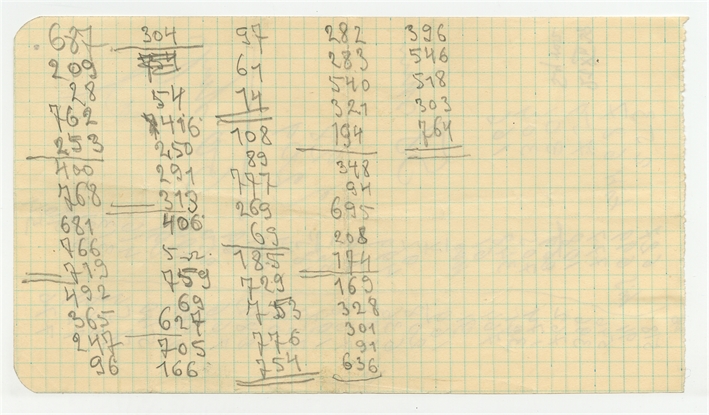 687
209
28
762
253
400
768
681
766
719
492
365
247
96
304
54
416
250
291
313
406
759
69
627
705
166
97
61
14
108
89
777
269
69
185
729
753
776
754
282
283
540
321
194
348
94
695
208
174
169
328
301
91
636
396
546
518
303
764